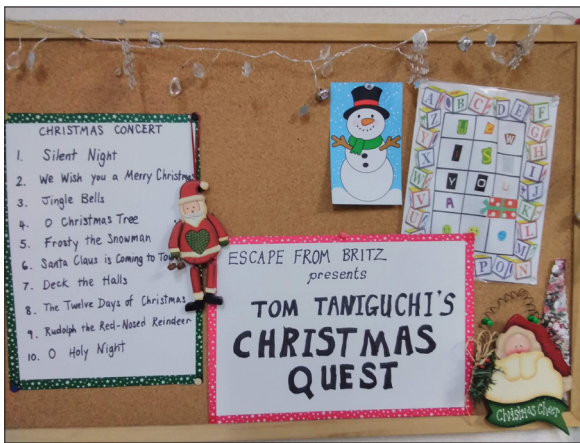 CHRISTMAS CONCERT
1. Silent Night
2. We Wish you a Merry Christmas
3. Jingle Bells
4. O Christmas Tree
5. Frosty the Snowman
6. Santa Claus is Coming to
7. Deck the Halls
8. The Twelve Days of Christmas
9. Rudolph the Red-Nosed Reindeer
10. O Holy Night
ESCAPE FROM BRITZ
presents
TOM TANIGUCHI'S
CHRISTMAS
QUEST
A B C D E F
Z G
Y H
X I
W J
V K
U L
M
P O N
W
I S
Y O U
A
Christmas Cheer